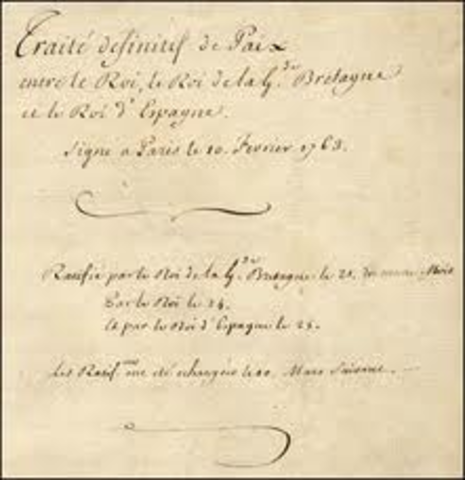 Traité definitif de Paix
entre le Roi, le Roi de la G.de Bretagne
et le Roi d'Espagne.
Signé a Paris le 10. Fevrier 1763.
Ratifié par le Roi de la G.de Bretagne le 21. du meme Mois
Par le Roi le 24.
Et par le Roi d'Espagne le 25.
Les Ratif.ons ont été echangées le 10. Mars Suivant.